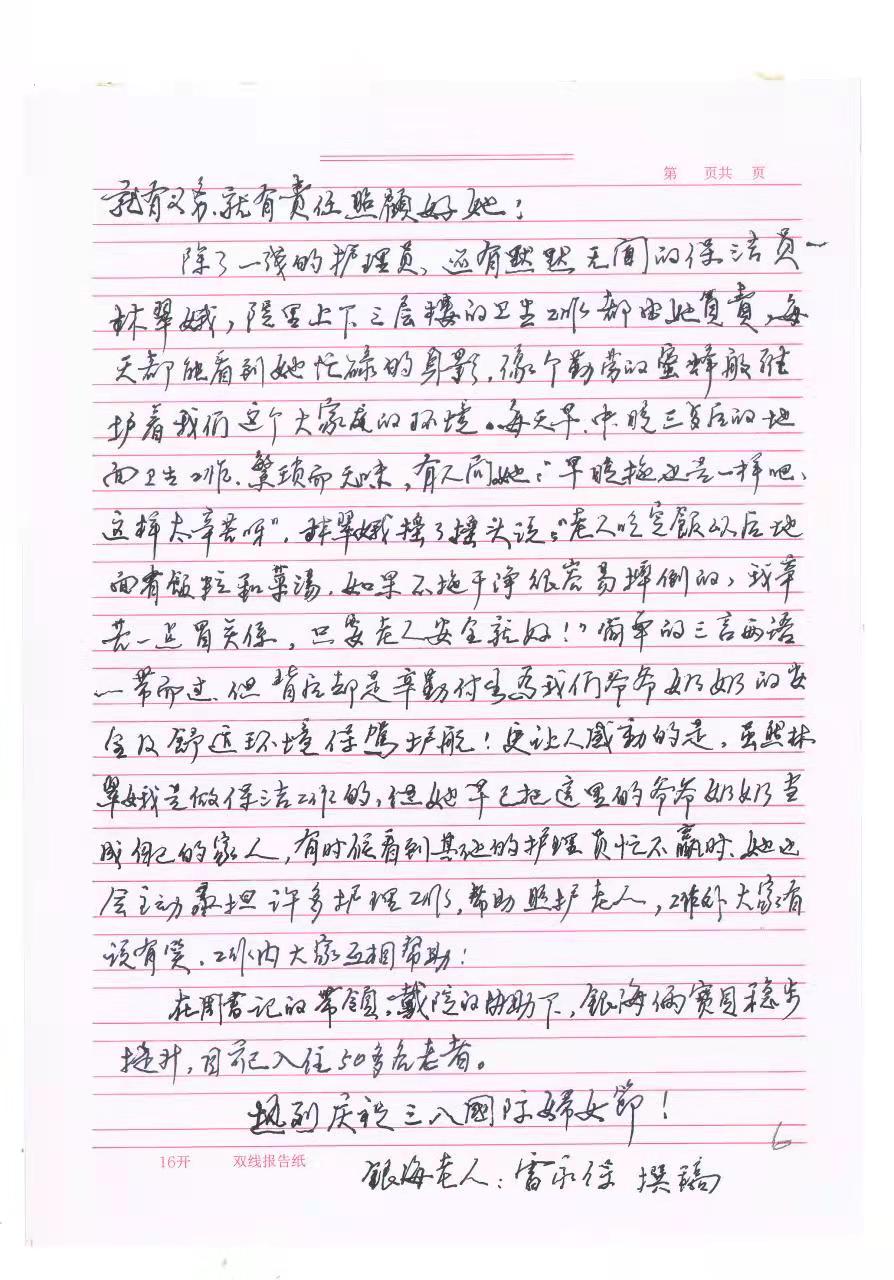 第 页共 页
就有义务、就有责任照顾好她！
除了一线的护理员，还有默默无闻的保洁员—
林翠娥，院里上下三层楼的卫生工作都由她负责，每
天都能看到她忙碌的身影，像个勤劳的蜜蜂般维
护着我们这个大家庭的环境。每天早、中、晚三餐后的地
面卫生工作、繁琐而无味，有人问她：“早晚拖还是一样吧、
这样太辛苦呀”，林翠娥摇了摇头说：“老人吃完饭以后地
面有饭粒和菜汤，如果不拖干净很容易摔倒的，我辛
苦一点冒关係，只要老人安全就好！”简单的三言两语
一带而过、但背后却是辛勤付出为我们爷爷奶奶的安
全及舒适环境保驾护航！更让人感动的是，虽然林
翠娥是做保洁工作的，但她早已把这里的爷爷奶奶当
成自己的家人，有时候看到其他的护理员忙不赢时、她还
会主动承担许多护理工作，帮助照护老人，工作外大家有
说有笑、工作内大家互相帮助！
在周书记的带领，戴院的协助下，银海俩宝贝稳步
提升，目前已入住50多名老者。
热烈庆祝三八國际婦女節！
6
16开 双线报告纸
銀海老人：雷永保 撰稿